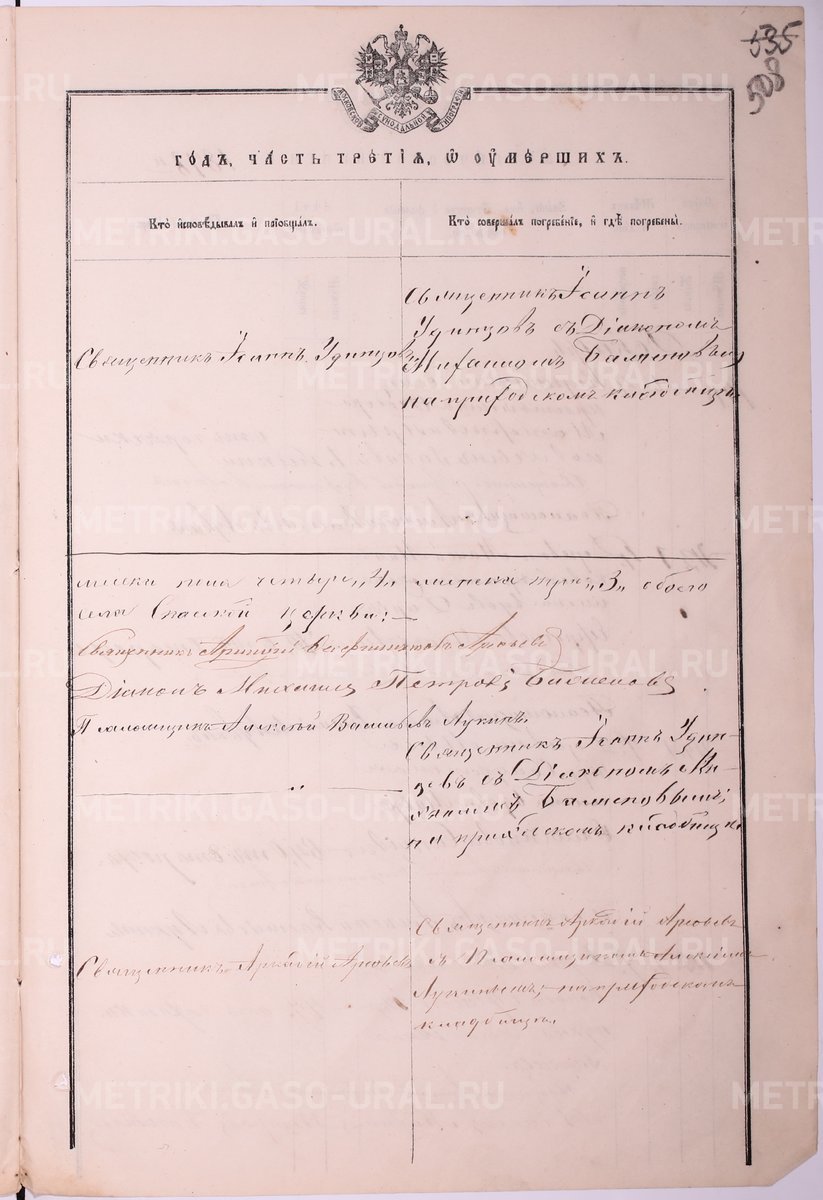 535
508
МОСКОВСКОЙ СѴНОДАЛЬНОЙ ТИПОГРАФІИ
ГОДЪ, ЧАСТЬ ТРЕТІЯ, Ѿ ОУМЕРШИХЪ.
Кто исповѣдывалъ и пріобщалъ.
Кто совершалъ погребеніе, и гдѣ погребены.
Священникъ Іоаннъ Удинцовъ
Священникъ Іоаннъ
Удинцовъ съ Діакономъ
Михаиломъ
на приходскомъ кладбищѣ.
пола четыре „4„ женска три „3„ обоего
села Спаской церкви:
Священникъ Аркадій
Діаконъ Михаилъ Петровъ
Псаломщикъ Алексѣй Васильевъ Лукинъ.
Священникъ Іоаннъ Удин-
цовъ съ Діакономъ Ми-
хаиломъ
на приходскомъ кладбищѣ
Священникъ Аркадій
Священникъ Аркадій
съ Псаломщикомъ Алексѣемъ
Лукинымъ, на приходскомъ
кладбищѣ.
METRIKI.GASO-URAL.RU